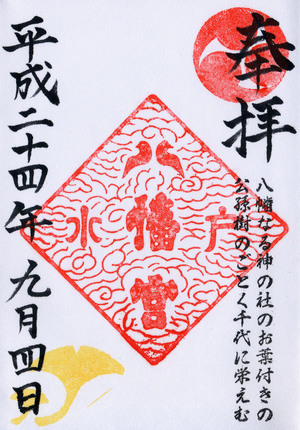 奉拝
八幡なる神の社のお葉付きの
公孫樹のごとく千代に栄えむ
水戸
八幡宮
平成二十四年九月四日